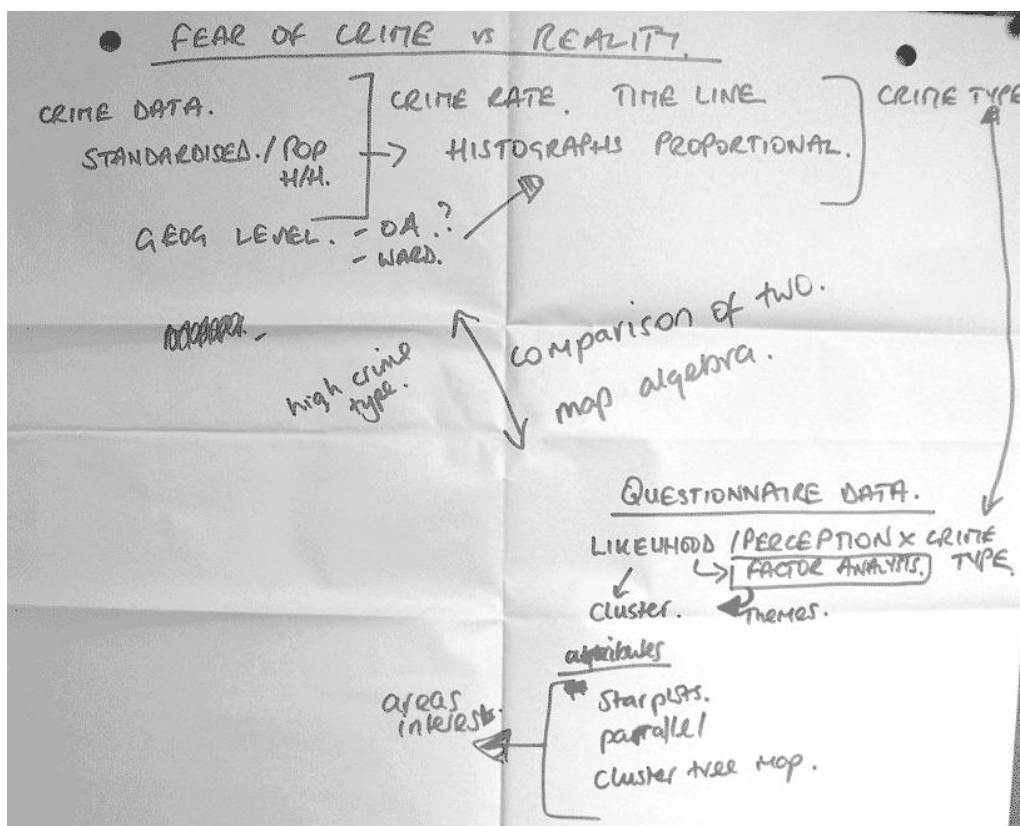 FEAR OF CRIME vs REALITY.
CRIME DATA.
STANDARDISED./POP
H/H.
GEOG LEVEL. - OA.?
- WARD.
CRIME RATE. TIME LINE
HISTOGRAPHS PROPORTIONAL.
CRIME TYPE
high crime
type.
comparison of two.
map algebra.
QUESTIONNAIRE DATA.
LIKELIHOOD /PERCEPTION x CRIME
TYPE
FACTOR ANALYSIS.
Cluster.
Themes.
attributes
starplots.
parrallel
cluster tree map.
areas
interest.